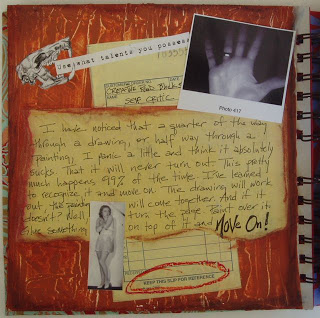 Use what talents you possess
DATE
CREATIVE
SELF CRITIC
Photo #17
I have noticed that a quarter of the way
through a drawing, or half way through a
painting, I panic a little and think it absolutely
sucks. That it will never turn out. This pretty
much happens 99% of the time. I've learned
to recognize it and move on. The drawing will work
out. The will come together. And if it
doesn't? Well, turn the page. Paint over it.
Glue something on top of it and Move On!
KEEP THIS SLIP FOR REFERENCE